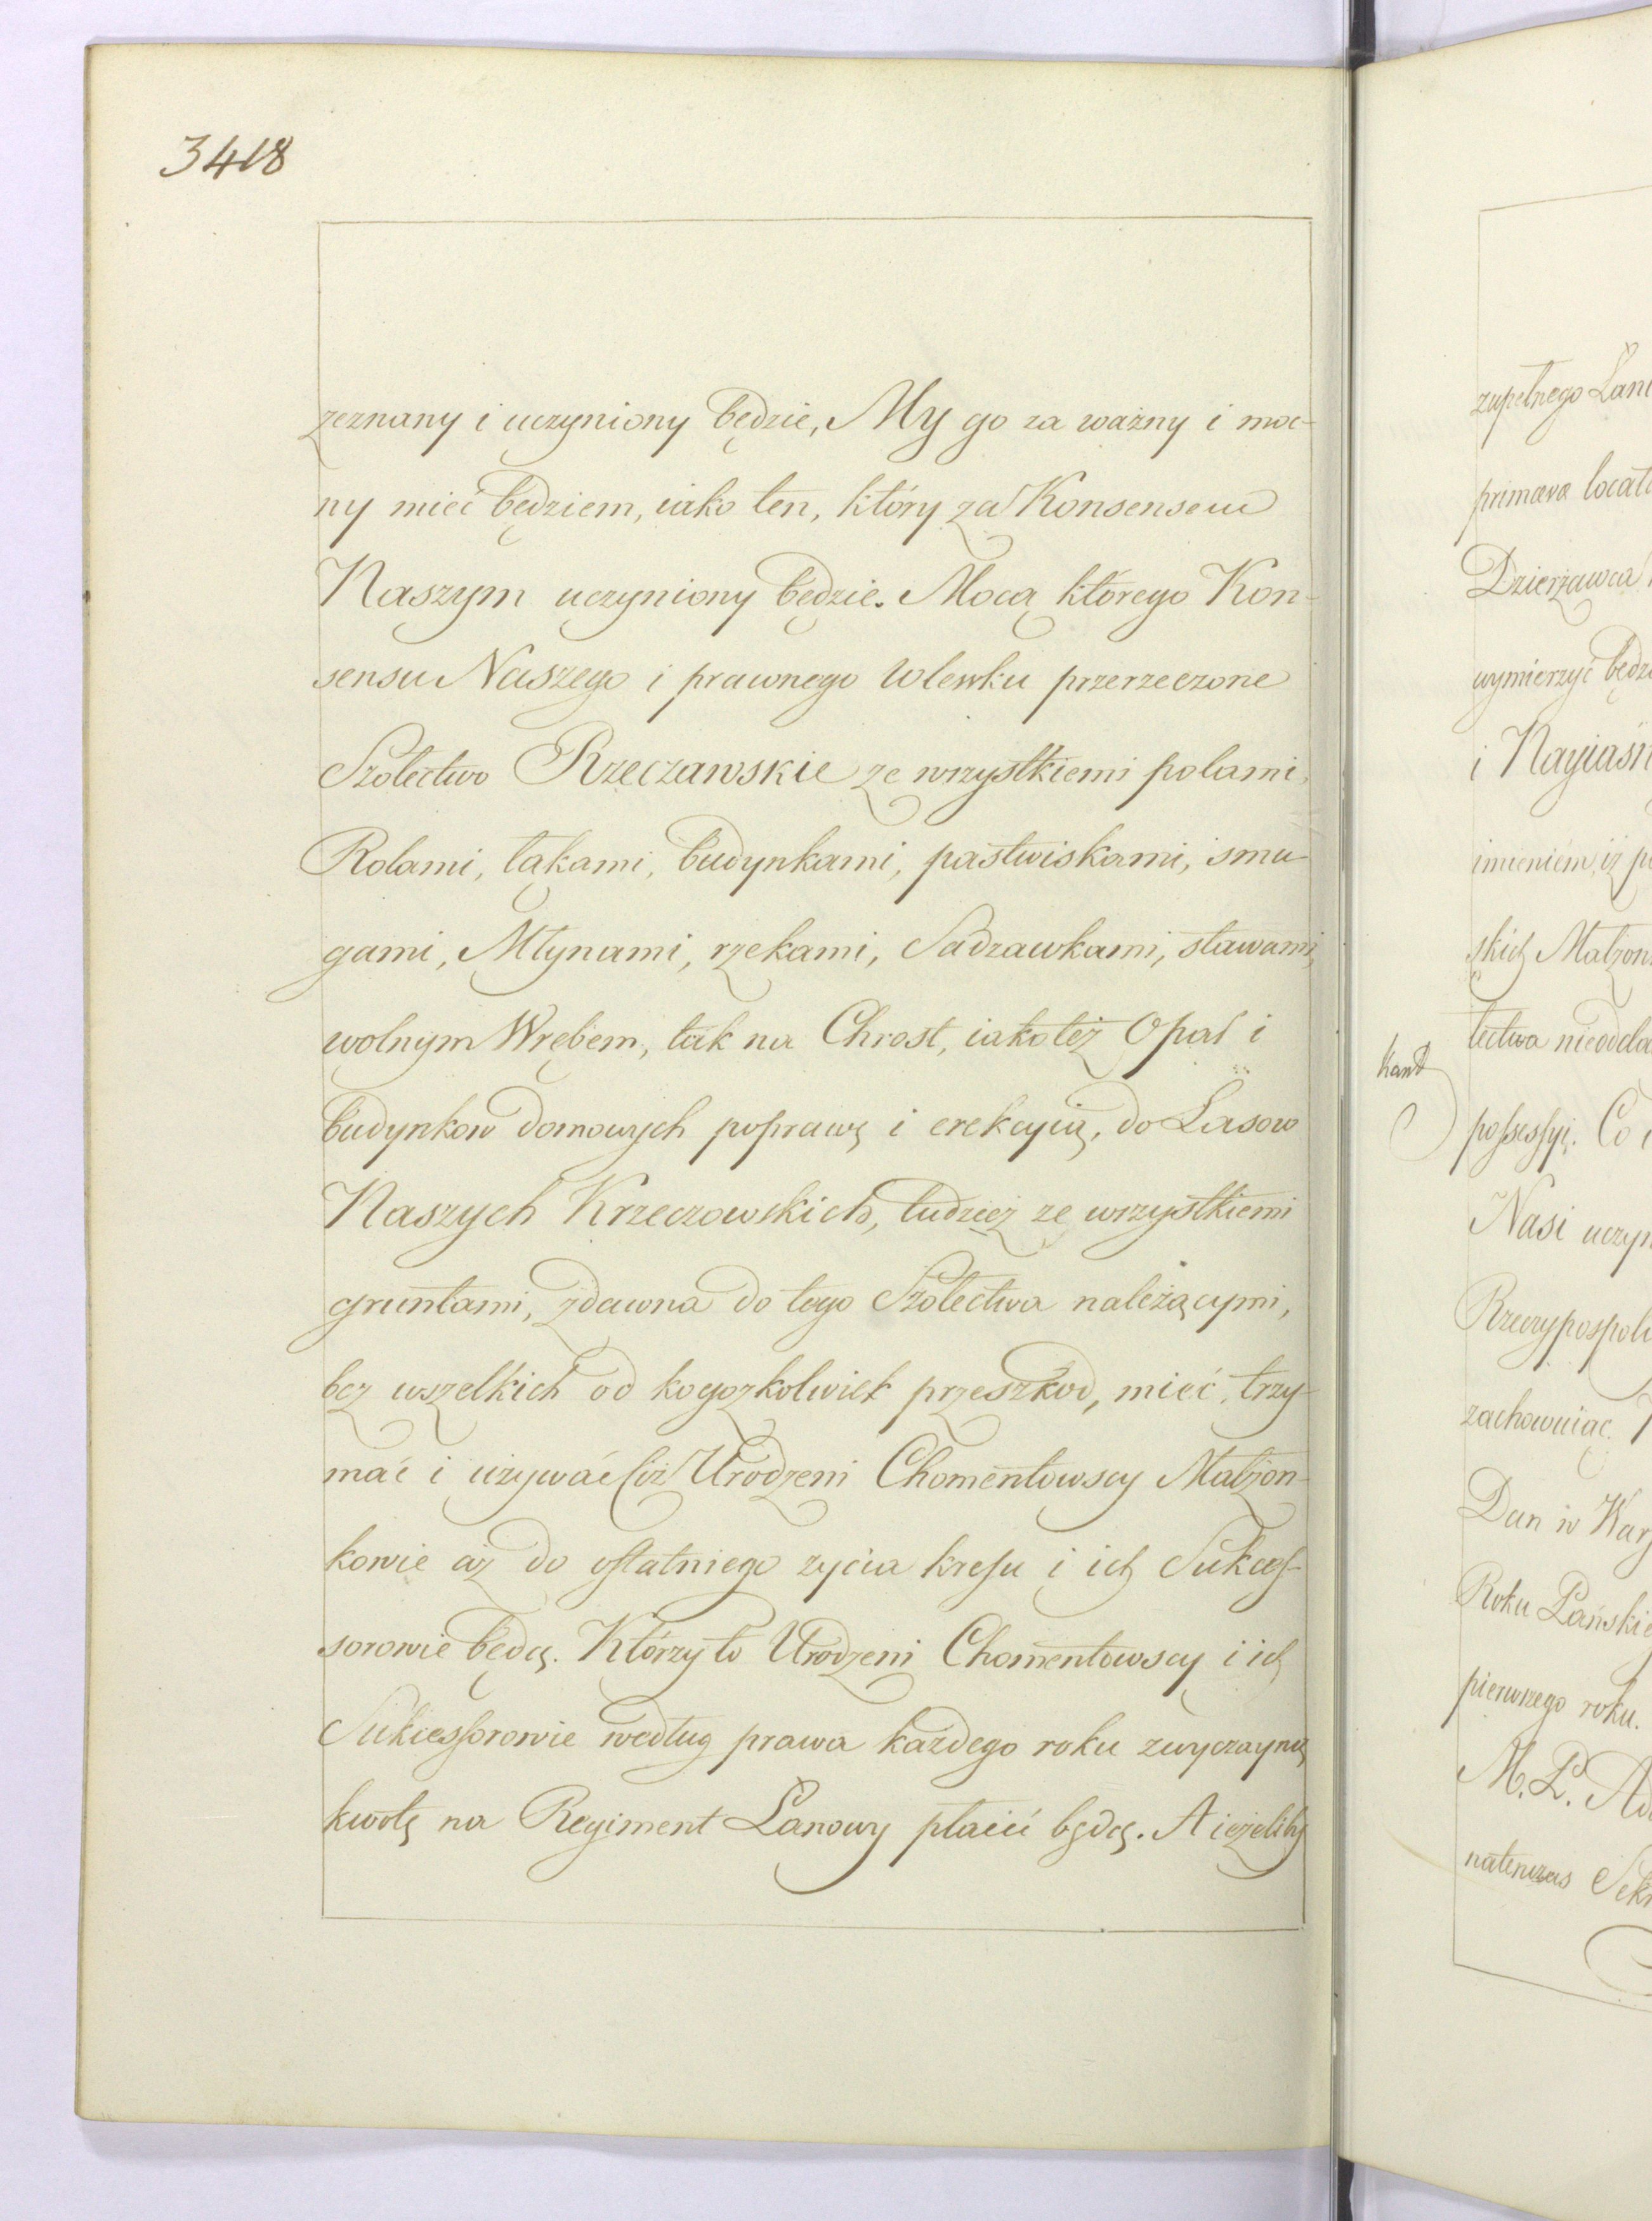 3418
zeznany i uczyniony będzie, My go za ważny i moc-
ny mieć będziem, iako ten, który za Konsensem
Naszym uczyniony będzie. Mocą którego Kon-
sensu Naszego i prawnego wlewku przerzeczone
Szołectwo Rzeczawskie ze wszystkiemi polami,
Rolami, łąkami, budynkami, pastwiskami, smu-
gami, Młynami, rzekami, Sadzawkami, stawami,
wolnym Wrębem, tak na Chrost, iakoteż Opał i
budynkow domowych poprawę i erekcyią, do Lasow
Naszych Krzeczowskich, tudzież ze wszystkiemi
gruntami, zdawna do tego Szołectwa należącymi,
bez wszelkich od kogożkolwiek przeszkod, mieć, trzy-
mać i używać ciż Urodzeni Chomentowscy Małżon-
kowie aż do ostatniego zycia kresu i ich Sukces-
sorowie będą. Którzy to Urodzeni Chomentowscy i ich
Sukcessorowie według prawa każdego roku zwyczayną
kwotę na Regiment Lanowy płacić będą. A ieżeliby
zupełnego Lan
primæva locat
Dzierżawca
wymierzyć będz
i Nayiaśn
imieniem, iż p
skich Małżon
łectwa nieodda
kant
possessyi. Co
Nasi uczyn
Rzeczypospoli
zachowuiąc.
Dan w War
Roku Pańskie
pierwszego roku.
M. P. Au
natenczas Sekr